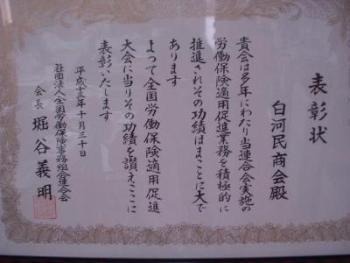 表彰状
白河民商会殿
貴会は多年にわたり当連合会実施の
労働保険適用促進業務を積極的に
推進されその功績はまことに大で
あります
よって全国労働保険適用促進
大会に当りその功績を讃えここに
表彰いたします
平成十三年十月三十日
社団法人全国労働保険事務組合連合会
会長 堀谷義明